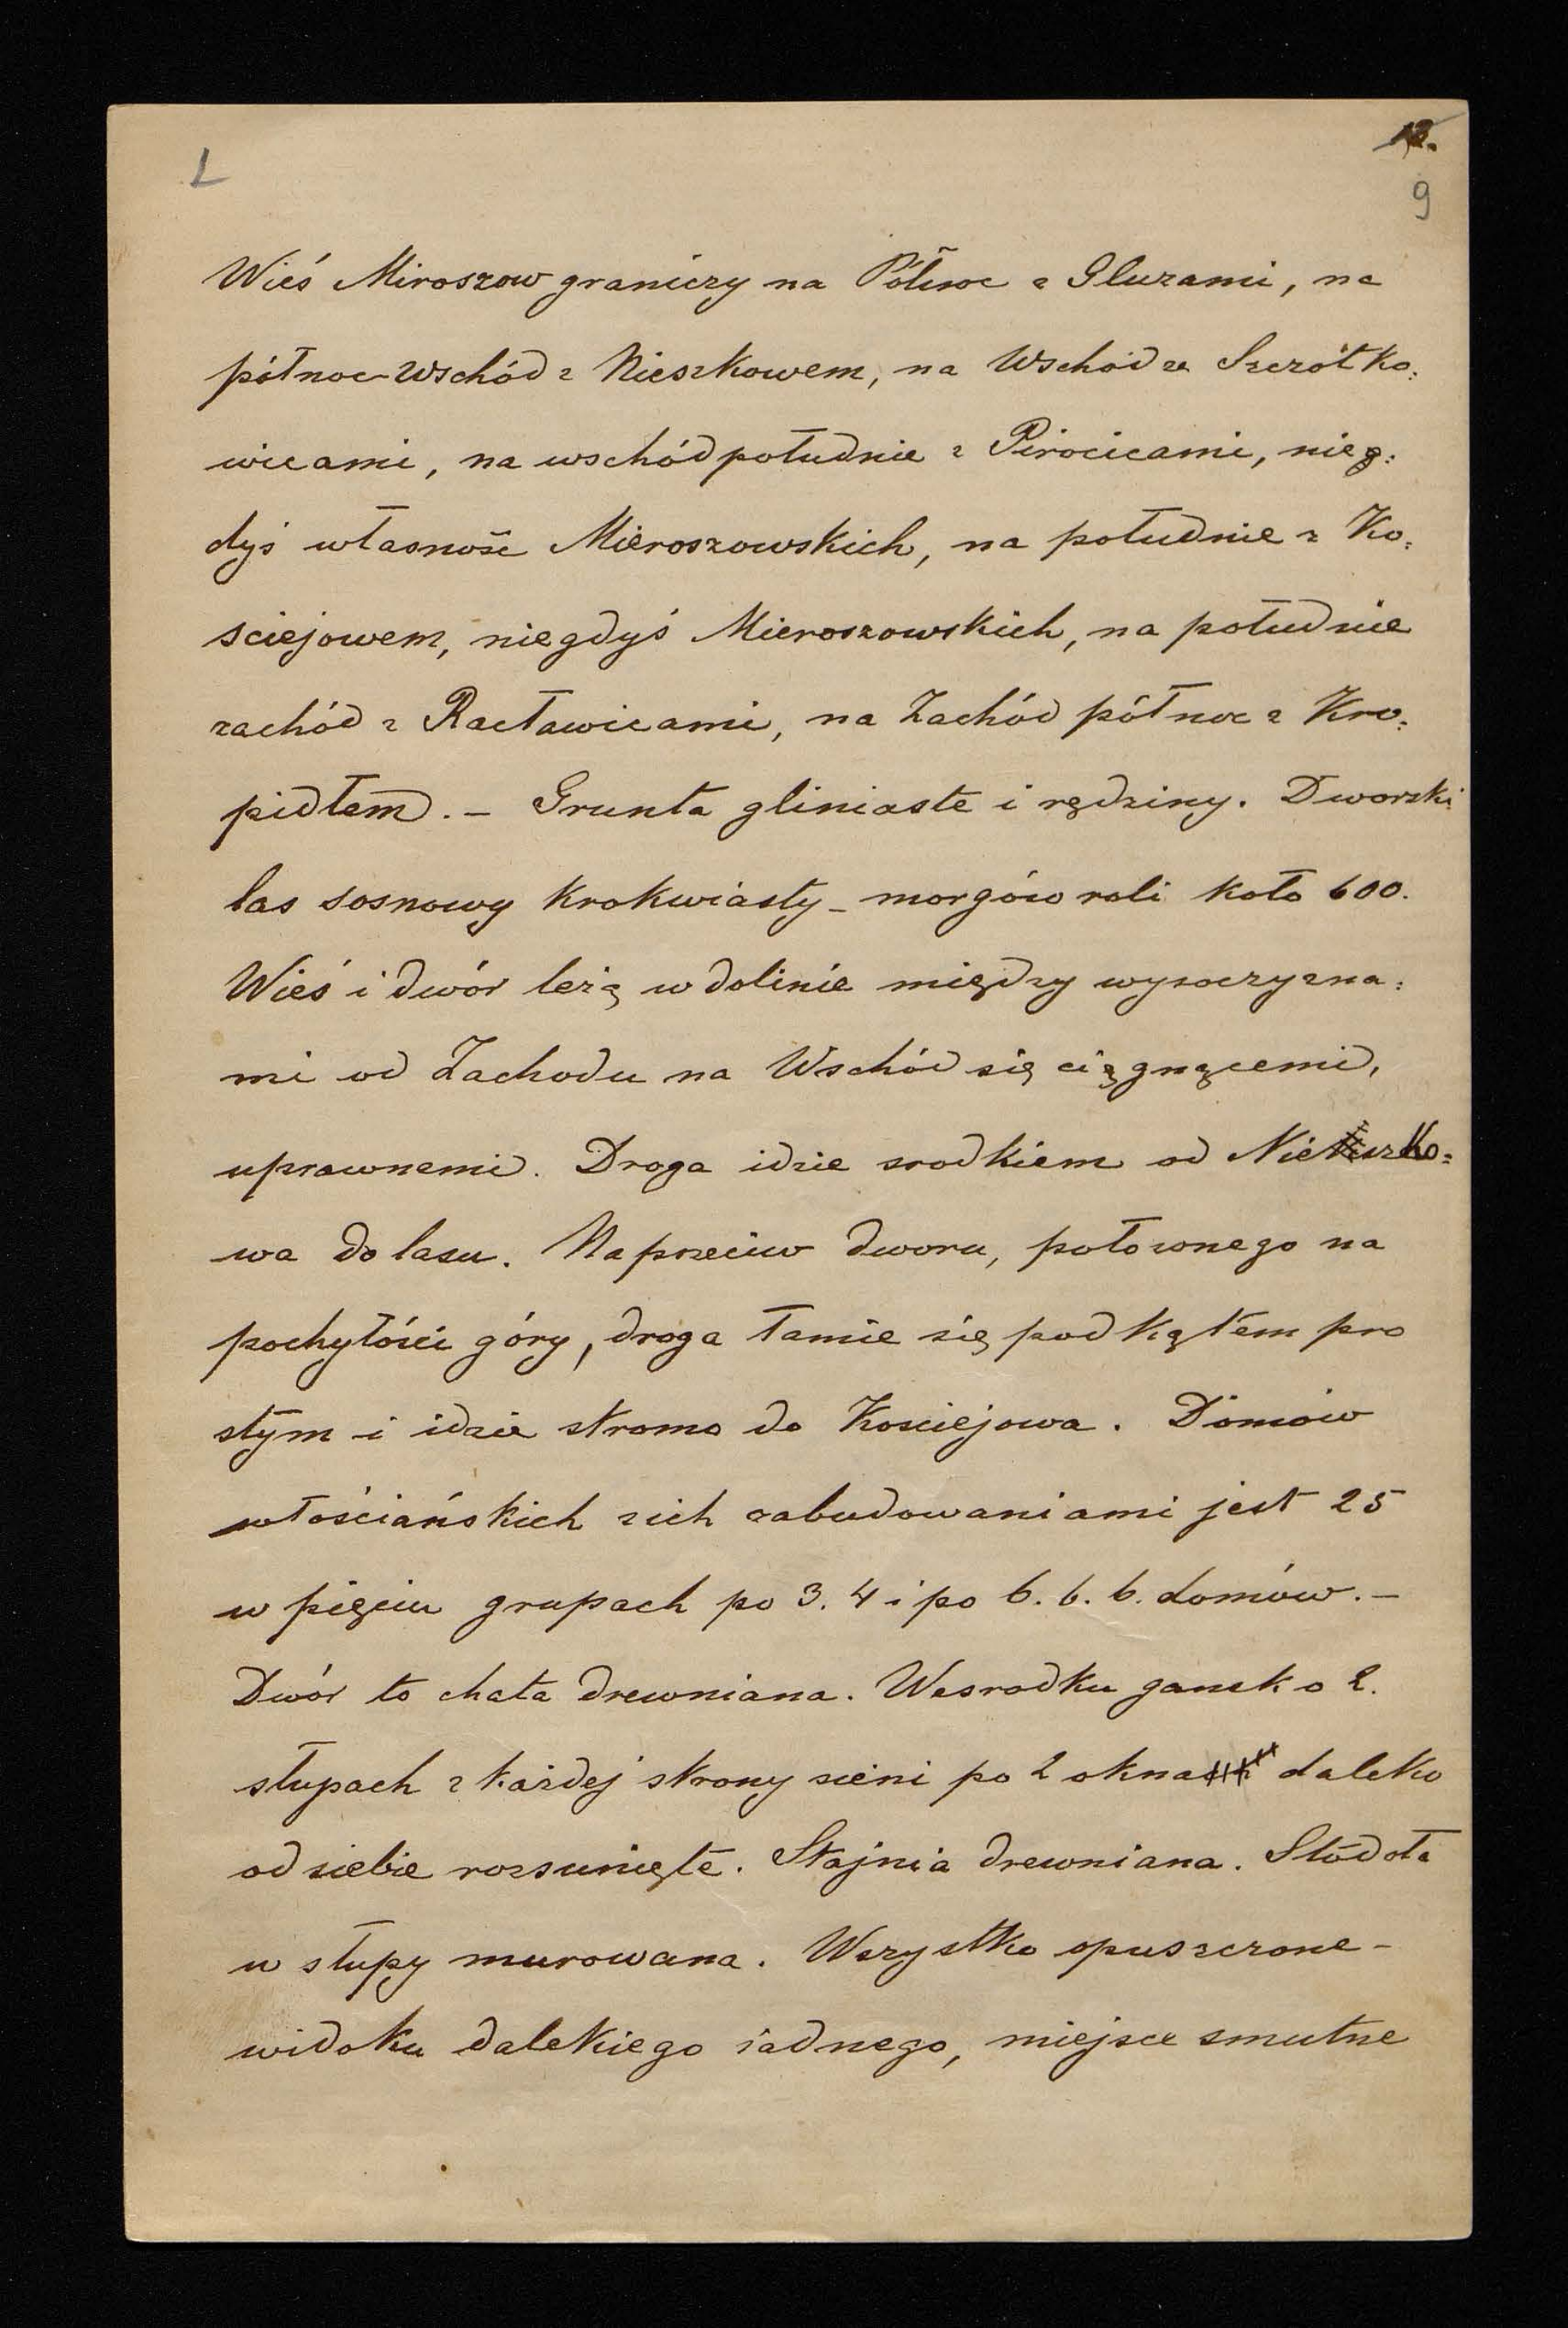 L
12.
9
Wieś Miroszow graniczy na Północ z Gluzami, na
północ-wschód z Nieszkowem, na Wschód ze Szczótko:
wicami, na wschódpołudnie z Pirocicami, nieg:
dyś własność Mieroszowskich, na południe z Ko:
ściejowem, niegdyś Mieroszowskich, na południe
zachód z Racławicami, na Zachód północ z Kro:
pidłem. – Grunta gliniaste i rędziny. Dworski
las sosnowy krokwiasty – morgów roli koło 600.
Wieś i dwór leżą w dolinie między wysoczyzna:
mi od Zachodu na Wschód się ciągnącemi,
uprawnemi. Droga idzie srodkiem od Nieszko:
wa do lasu. Naprzeciw dworu, położonego na
pochyłości góry, droga łamie się pod kątem pro
stym i idzie stromo do Kosciejowa. Domów
włościańskich z ich zabudowaniami jest 25
w pięciu grupach po 3. 4 i po 6. 6. 6. domów. –
Dwór to chata drewniana. Wesrodku ganek o 2.
słupach z każdej strony sieni po 2 okna daleko
od siebie rozsunięte. Stajnia drewniana. Stodoła
w słupy murowana. Wszystko opuszczone –
widoku dalekiego żadnego, miejsce smutne